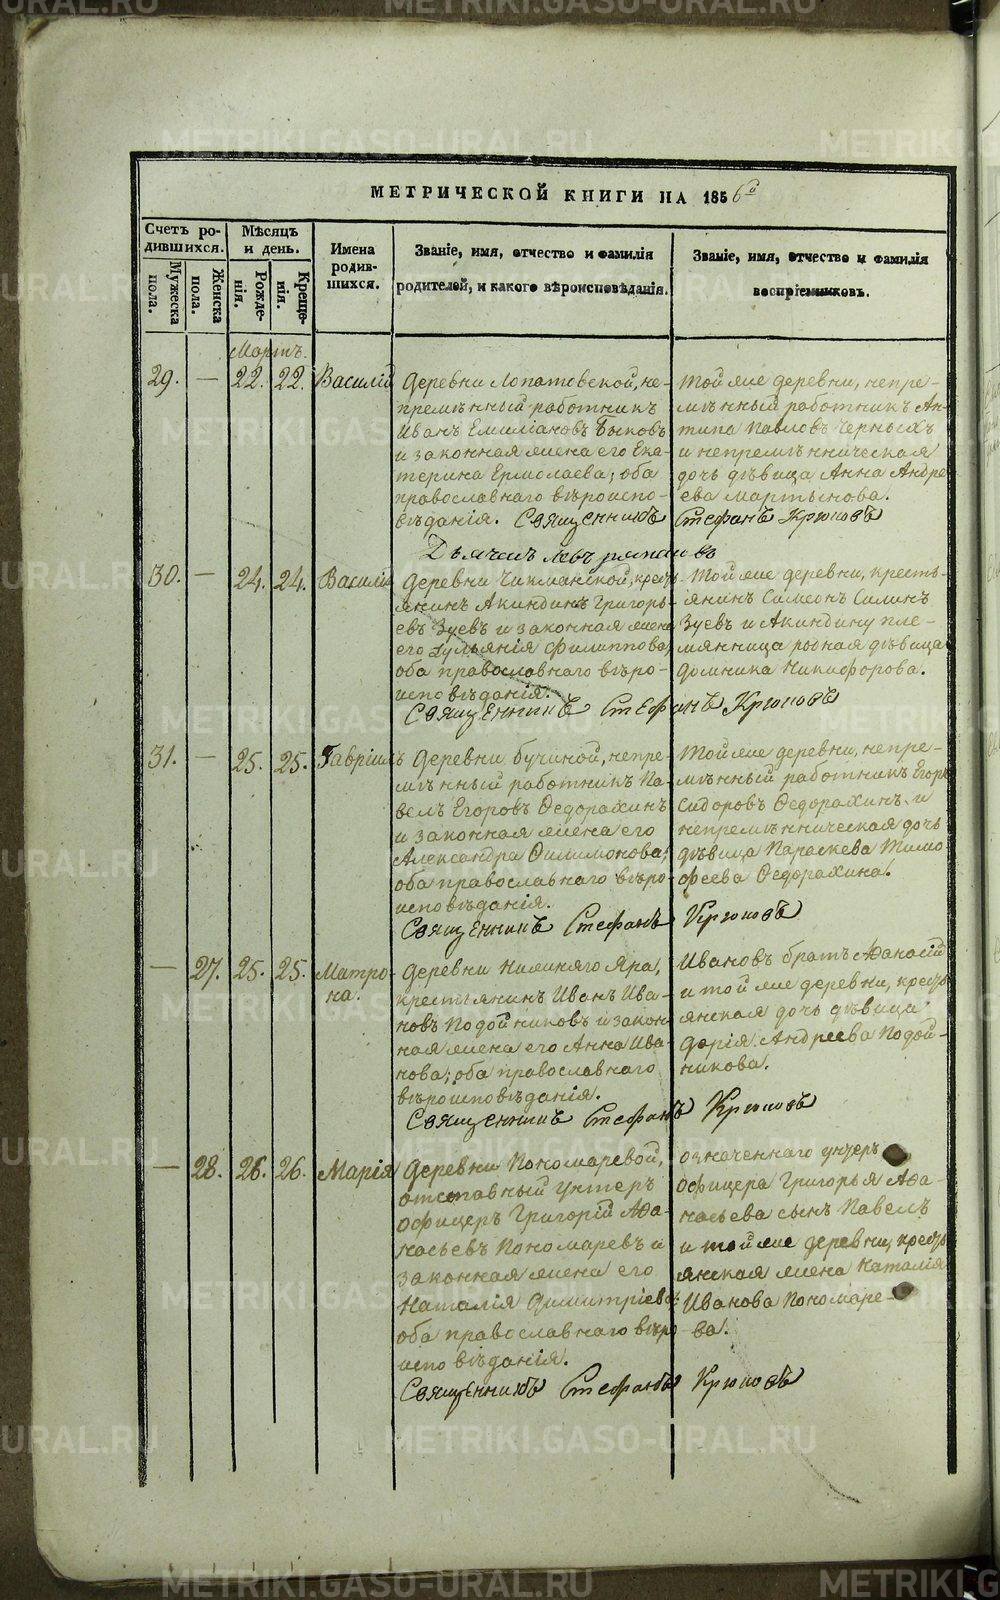 МЕТРИЧЕСКОЙ КНИГИ НА 1856 й
Счетъ ро-
дившихся.
Мужеска
пола.
Женска
пола.
Мѣсяцъ
и день.
Рожде-
нія.
Креще-
нія.
Имена
родив-
шихся.
Званіе, имя, отчество и фамилія
родителей, и какого вѣроисповѣданія.
Званіе, имя, отчество и фамилія
воспріемниковъ.
Мартъ.
29. — 22. 22. Василій
Деревни Лопатовской, не-
премѣнный работникъ
Иванъ Емиліановъ Быковъ
и законная жена его Ека-
терина Ермолаева; оба
православнаго вѣроиспо-
вѣданія.
Той же деревни, непре-
мѣнный работникъ Ан-
типа Павловъ Черныхъ
и непремѣнническая
дочь дѣвица Анна Андре-
ева Мартынова.
Священникъ Стефанъ Крюковъ
Дьячекъ Левъ
30. — 24. 24. Василій
Деревни Чикманской, кресть-
янинъ Акиндинъ Григорь-
евъ Зуевъ и законная жена
его Гульянія Филиппова,
оба православнаго вѣро-
исповѣданія.
Той же деревни, кресть-
янинъ Симеонъ Силинъ
Зуевъ и Акиндину пле-
мянница родная дѣвица
Домника Никифорова.
Священникъ Стефанъ Крюковъ
31. — 25. 25. Гавріилъ
Деревни Бучиной, непре-
мѣнный работникъ Па-
велъ Егоровъ Ѳедорахинъ
и законная жена его
Александра Филимонова;
оба православнаго вѣро-
исповѣданія.
Той же деревни, непре-
мѣнный работникъ Егоръ
Сидоровъ Ѳедорахинъ и
непремѣнническая дочь
дѣвица Параскева Тимо-
феева Ѳедорахина.
Священникъ Стефанъ Крюковъ
— 27. 25. 25. Матро-
на.
Деревни Нижняго Яра,
крестьянинъ Иванъ Ива-
новъ Подойниковъ и закон-
ная жена его Анна Ива-
нова; оба православнаго
вѣроисповѣданія.
Ивановъ братъ Аѳанасій
и той же деревни, кресть-
янская дочь дѣвица
Дарія Андреева Подой-
никова.
Священникъ Стефанъ Крюковъ
— 28. 26. 26. Марія
Деревни Пономаревой,
отставный унтеръ
офицеръ Григорій Аѳа-
насьевъ Пономаревъ и
законная жена его
Наталія Димитріева
оба православнаго вѣро-
исповѣданія.
означеннаго унтеръ
офицера Григорья Аѳа-
насьева сынъ Павелъ
и той же деревни, кресть-
янская жена Наталія
Иванова Пономаре-
ва.
Священникъ Стефанъ Крюковъ
METRIKI.GASO-URAL.RU